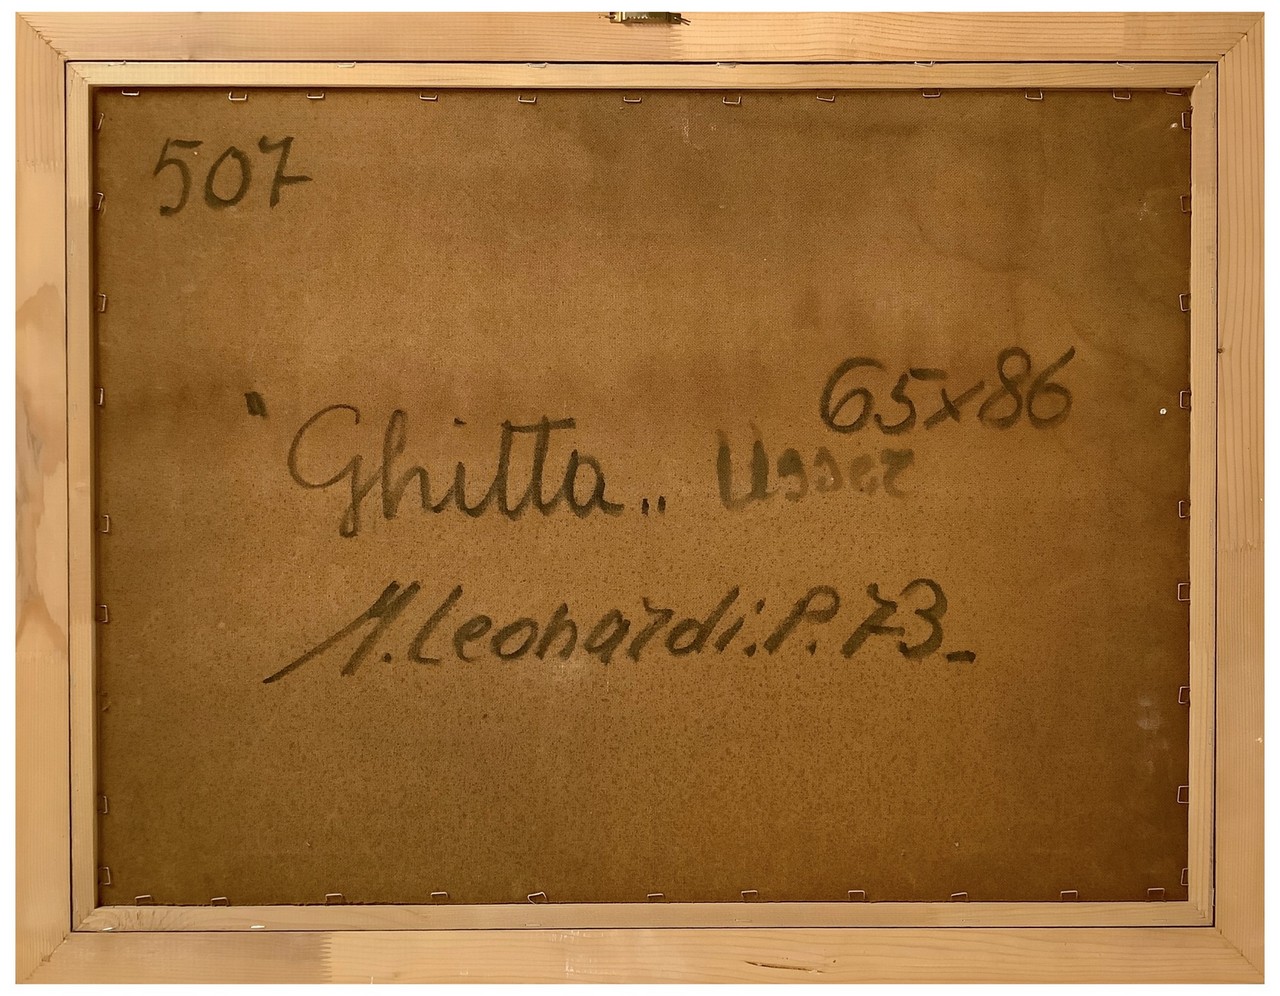 507
65x86
"Ghitta„ Usser
M.Leonardi.P.73_